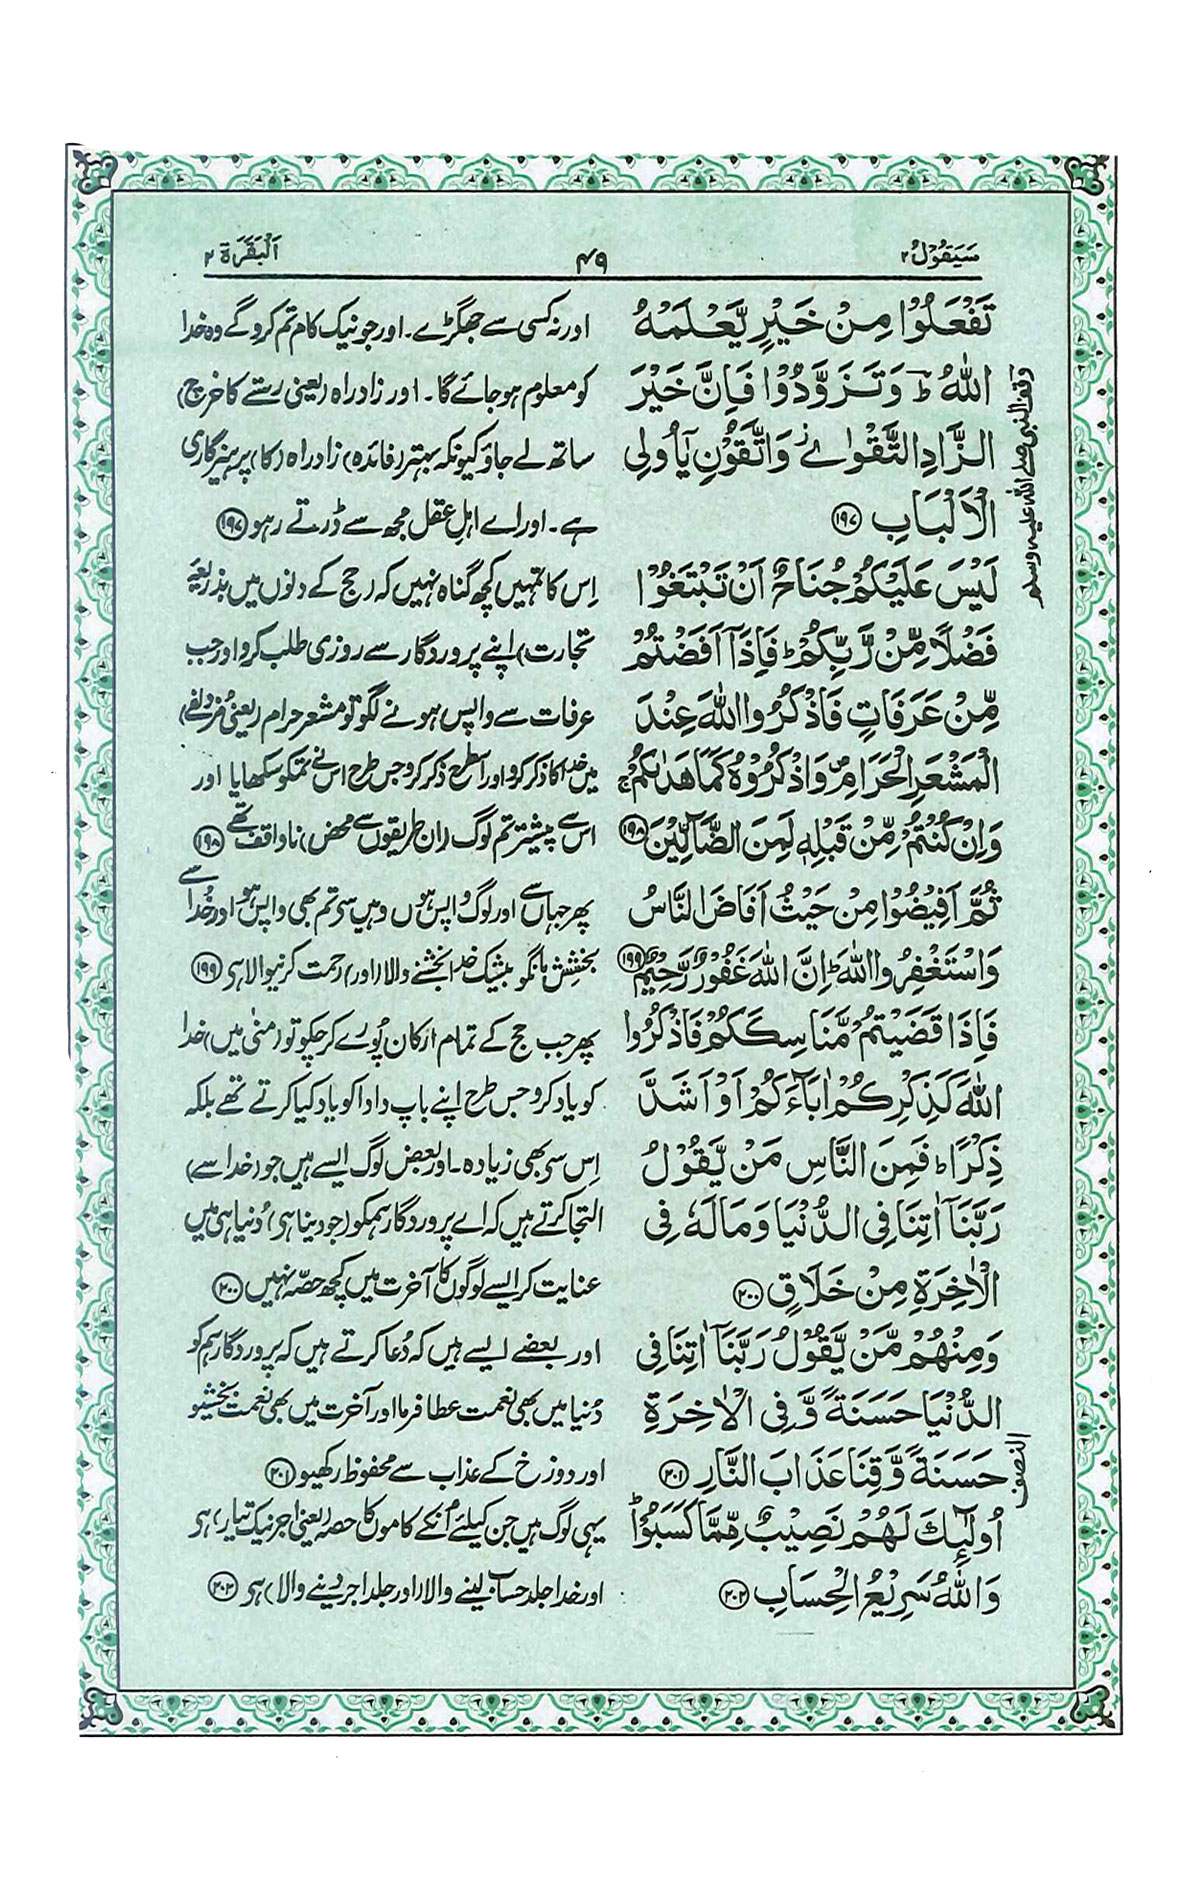 سَيَقُوْلُ ٢
٤٩
اَلْبَقَرَة ٢
تَفْعَلُوْا مِنْ خَيْرٍ يَّعْلَمْهُ
اللّٰهُ ؕ وَ تَزَوَّدُوْا فَاِنَّ خَيْرَ
الزَّادِ التَّقْوٰى ؗ وَ اتَّقُوْنِ يٰۤاُولِي
الْاَلْبَابِ ﴿۱۹۷﴾
لَيْسَ عَلَيْكُمْ جُنَاحٌ اَنْ تَبْتَغُوْا
فَضْلًا مِّنْ رَّبِّكُمْ ؕ فَاِذَاۤ اَفَضْتُمْ
مِّنْ عَرَفَاتٍ فَاذْكُرُوا اللّٰهَ عِنْدَ
الْمَشْعَرِ الْحَرَامِ ۪ وَ اذْكُرُوْهُ كَمَا هَدٰىكُمْ ۚ
وَ اِنْ كُنْتُمْ مِّنْ قَبْلِهٖ لَمِنَ الضَّآلِّيْنَ ﴿۱۹۸﴾
ثُمَّ اَفِيْضُوْا مِنْ حَيْثُ اَفَاضَ النَّاسُ
وَ اسْتَغْفِرُوا اللّٰهَ ؕ اِنَّ اللّٰهَ غَفُوْرٌ رَّحِيْمٌ ﴿۱۹۹﴾
فَاِذَا قَضَيْتُمْ مَّنَاسِكَكُمْ فَاذْكُرُوا
اللّٰهَ كَذِكْرِكُمْ اٰبَآءَكُمْ اَوْ اَشَدَّ
ذِكْرًا ؕ فَمِنَ النَّاسِ مَنْ يَّقُوْلُ
رَبَّنَاۤ اٰتِنَا فِي الدُّنْيَا وَ مَا لَهٗ فِي
الْاٰخِرَةِ مِنْ خَلَاقٍ ﴿۲۰۰﴾
وَ مِنْهُمْ مَّنْ يَّقُوْلُ رَبَّنَاۤ اٰتِنَا فِي
الدُّنْيَا حَسَنَةً وَّ فِي الْاٰخِرَةِ
حَسَنَةً وَّ قِنَا عَذَابَ النَّارِ ﴿۲۰۱﴾
اُولٰٓئِكَ لَهُمْ نَصِيْبٌ مِّمَّا كَسَبُوْا ؕ
وَ اللّٰهُ سَرِيْعُ الْحِسَابِ ﴿۲۰۲﴾
وقف النبی صلے اللہ علیہ وسلم
النصف
اور نہ کسی سے جھگڑے۔ اور جو نیک کام تم کرو گے وہ خدا
کو معلوم ہو جائے گا۔ اور زادراہ (یعنی رستے کا خرچ)
ساتھ لے جاؤ کیونکہ بہتر (فائدہ) زادراہ (کا) پرہیزگاری
ہے۔ اور اے اہلِ عقل مجھ سے ڈرتے رہو ﴿۱۹۷﴾
اِس کا تمہیں کچھ گناہ نہیں کہ (حج کے دنوں میں بذریعۂ
تجارت) اپنے پروردگار سے روزی طلب کرو اور جب
عرفات سے واپس ہونے لگو تو مشعرِ حرام (یعنی مزدلفے)
میں خدا کا ذکر کرو اور اسطرح ذکر کرو جس طرح اس نے تمکو سکھایا اور
اس سے پیشتر تم لوگ (ان طریقوں سے محض) ناواقف تھے ﴿۱۹۸﴾
پھر جہاں سے اور لوگ واپس ہوں وہیں سے تم بھی واپس ہو اور خُدا سے
بخشِش مانگو بیشک خدا بخشنے والا (اور) رحمت کرنیوالا ہی ﴿۱۹۹﴾
پھر جب حج کے تمام ارکان پُورے کر چکو تو (منیٰ میں) خدا
کو یاد کرو جس طرح اپنے باپ دادا کو یاد کیا کرتے تھے بلکہ
اِس سی بھی زیادہ۔ اور بعض لوگ ایسے ہیں جو (خدا سے)
التجا کرتے ہیں کہ اے پروردگار ہمکو (جو دینا ہی) دُنیا ہی میں
عنایت کر ایسے لوگوں کا آخرت میں کچھ حصّہ نہیں ﴿۲۰۰﴾
اور بعضے ایسے ہیں کہ دُعا کرتے ہیں کہ پروردگار ہم کو
دُنیا میں بھی نعمت عطا فرما اور آخرت میں بھی نعمت بخشیو
اور دوزخ کے عذاب سے محفوظ رکھیو ﴿۲۰۱﴾
یہی لوگ ہیں جن کیلئے اُنکے کاموں کا حصہ (یعنی اجر نیک تیار) ہی
اور خدا جلد حساب لینے والا (اور جلد اجر دینے والا) ہی ﴿۲۰۲﴾